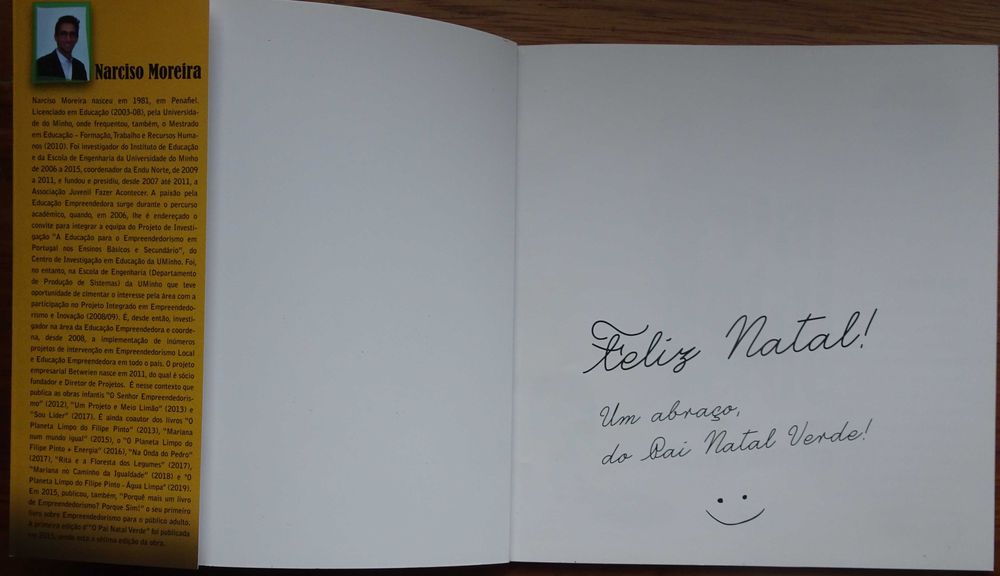 Narciso Moreira
Narciso Moreira nasceu em 1981, em Penafiel.
Licenciado em Educação (2003-08), pela Universida-
de do Minho, onde frequentou, também, o Mestrado
em Educação - Formação, Trabalho e Recursos Huma-
nos (2010). Foi investigador do Instituto de Educação
e da Escola de Engenharia da Universidade do Minho
de 2006 a 2015, coordenador da Endu Norte, de 2009
a 2011, e fundou e presidiu, desde 2007 até 2011, a
Associação Juvenil Fazer Acontecer. A paixão pela
Educação Empreendedora surge durante o percurso
académico, quando, em 2006, lhe é endereçado o
convite para integrar a equipa do Projeto de Investi-
gação "A Educação para o Empreendedorismo em
Portugal nos Ensinos Básicos e Secundário", do
Centro de Investigação em Educação da UMinho. Foi,
no entanto, na Escola de Engenharia (Departamento
de Produção de Sistemas) da UMinho que teve
oportunidade de cimentar o interesse pela área com a
participação no Projeto Integrado em Empreendedo-
rismo e Inovação (2008/09). É, desde então, investi-
gador na área da Educação Empreendedora e coorde-
na, desde 2008, a implementação de inúmeros
projetos de intervenção em Empreendedorismo Local
e Educação Empreendedora em todo o país. O projeto
empresarial Betweien nasce em 2011, do qual é sócio
fundador e Diretor de Projetos. É nesse contexto que
publica as obras infantis "O Senhor Empreendedoris-
mo" (2012), "Um Projeto e Meio Limão" (2013) e
"Sou Líder" (2017). É ainda coautor dos livros "O
Planeta Limpo do Filipe Pinto" (2013), "Mariana
num mundo igual" (2015), o "O Planeta Limpo do
Filipe Pinto + Energia" (2016), "Na Onda do Pedro"
(2017), "Rita e a Floresta dos Legumes" (2017),
"Mariana no Caminho da Igualdade" (2018) e "O
Planeta Limpo do Filipe Pinto - Água Limpa" (2019).
Em 2015, publicou, também, "Porquê mais um livro
de Empreendedorismo? Porque Sim!" o seu primeiro
livro sobre Empreendedorismo para o público adulto.
A primeira edição d'"O Pai Natal Verde" foi publicada
em 2015, sendo esta a sétima edição da obra.
Feliz Natal!
Um abraço,
do Pai Natal Verde!